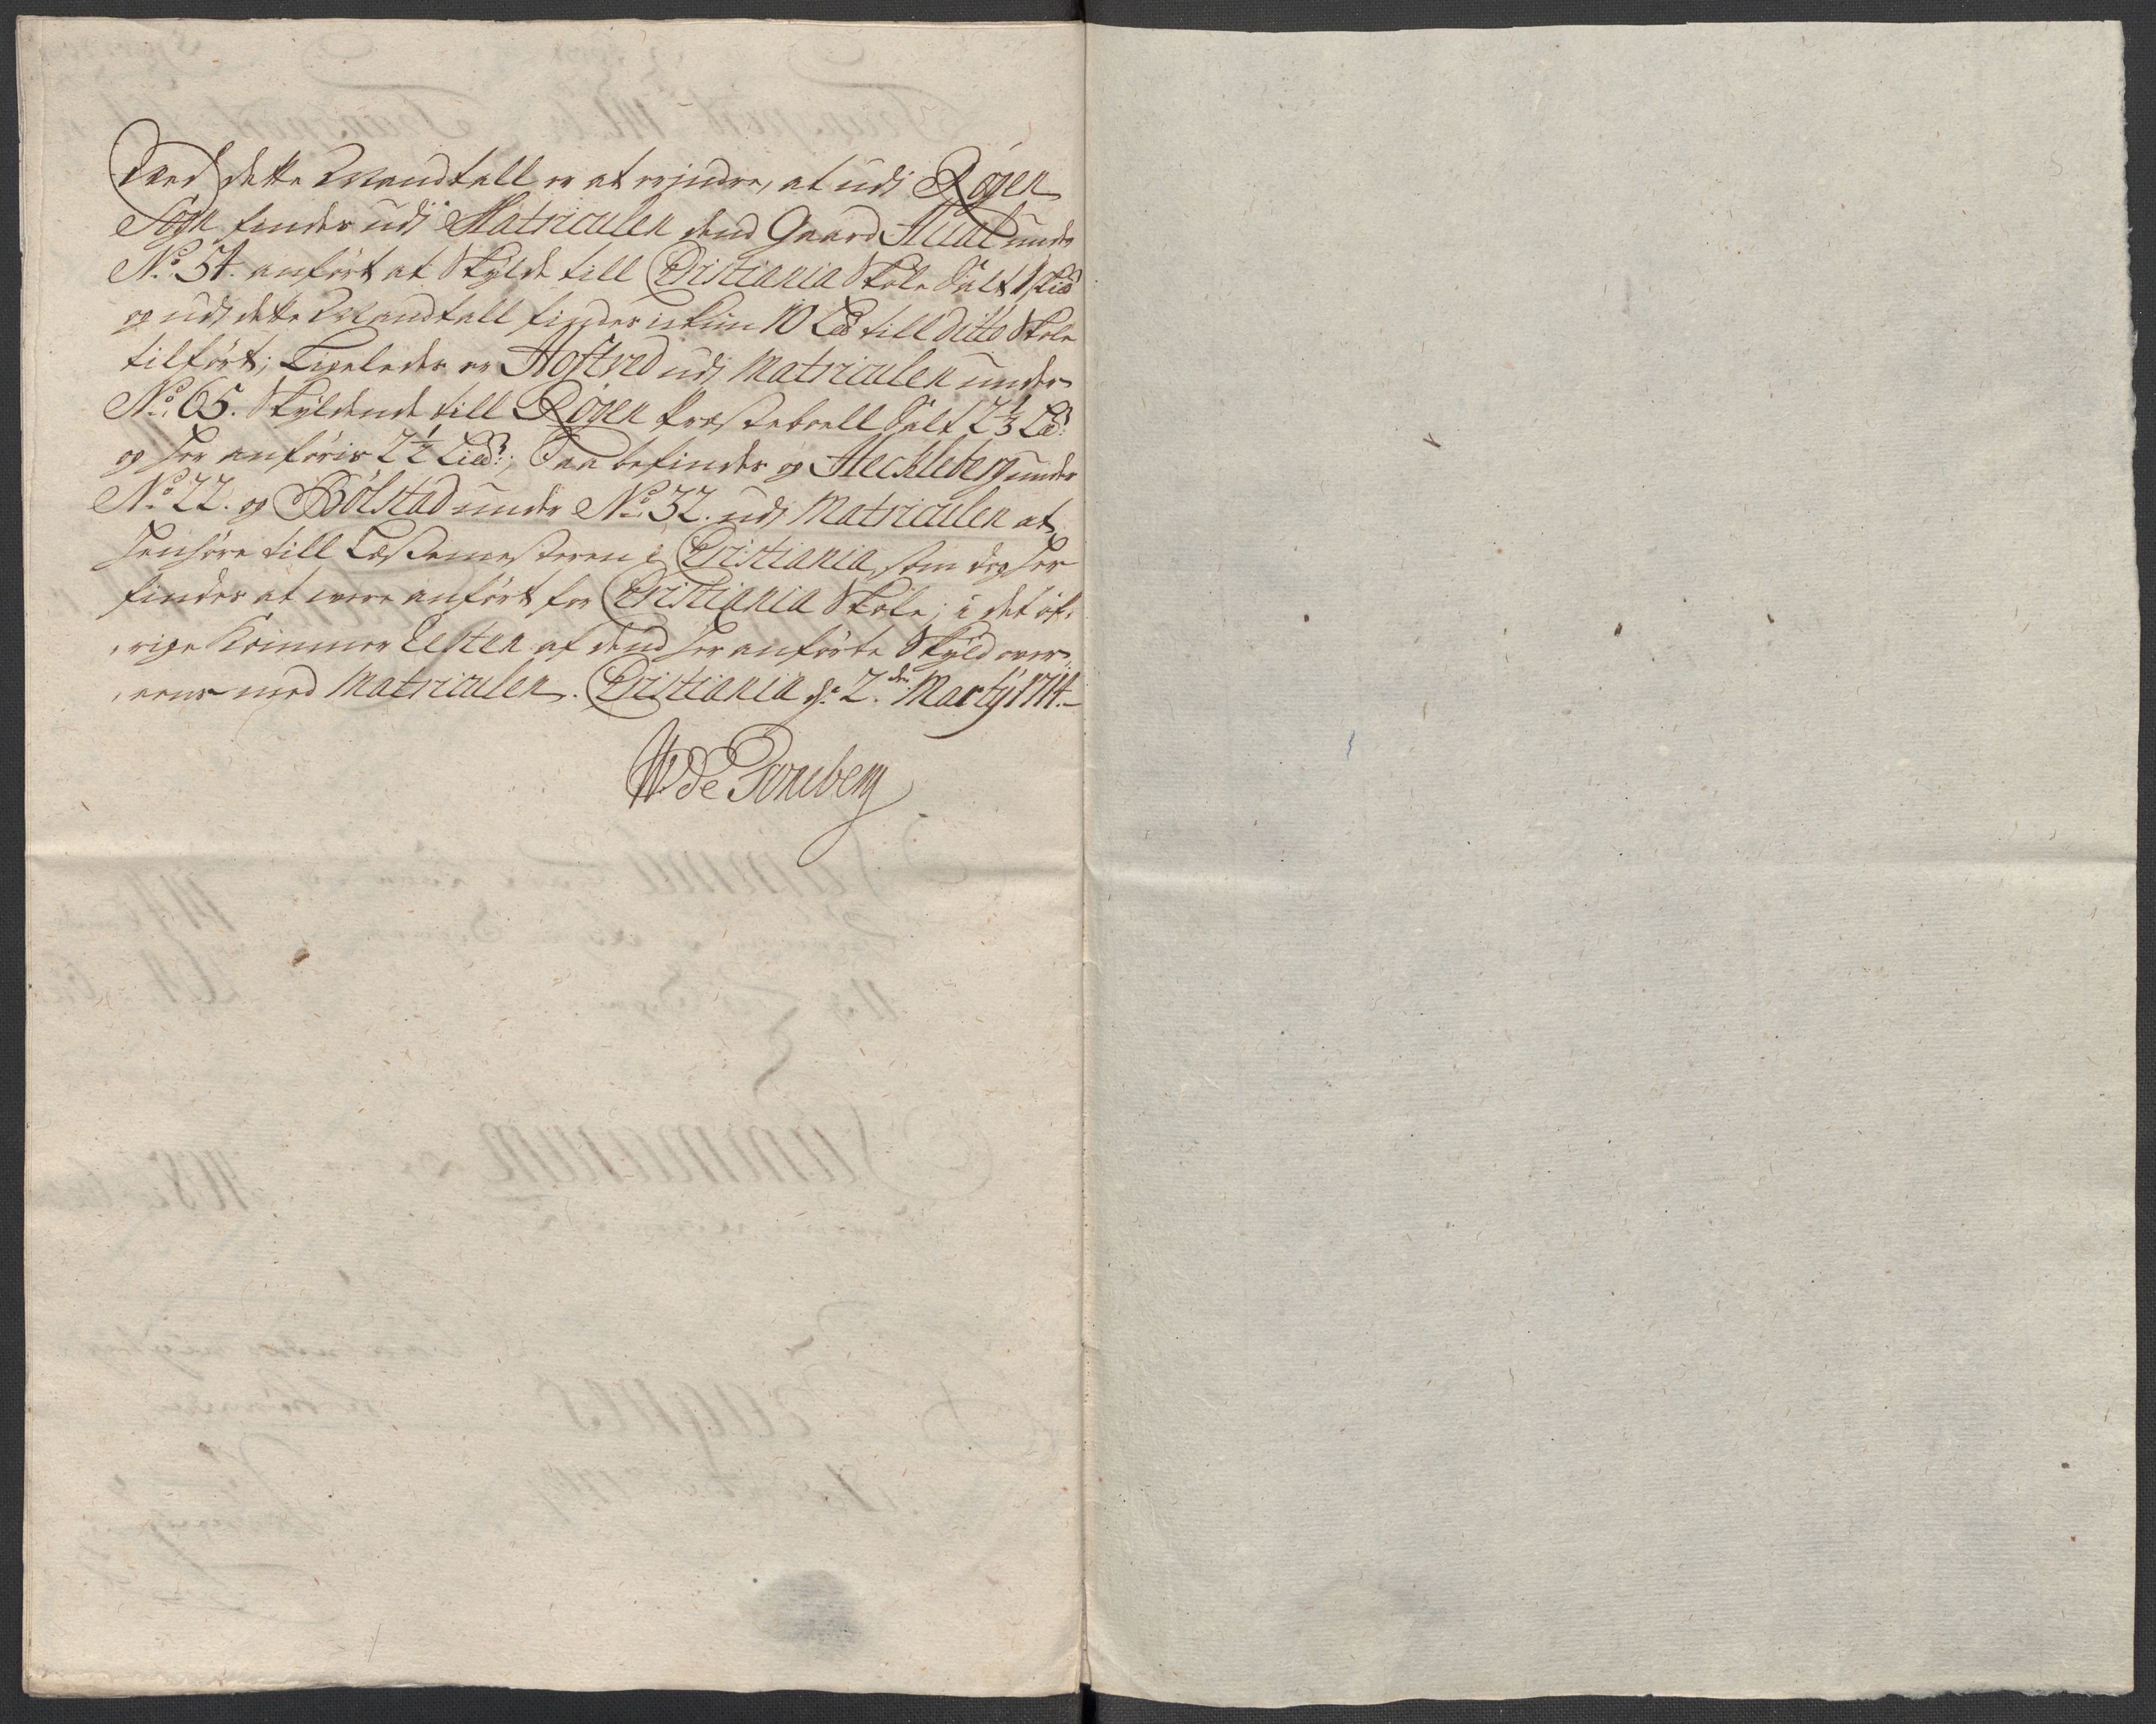 Ved dette Mandtall er at erindre, at udi Røgen
Sogn findes udi Matriculen dend Gaard Hual under
No. 54. anført at Skylde till Christiania Skole Salt 1 Lid
og udi dette Mandtall findes ickun 10 Lod till Ditto Skole
tilført; Ligeledes er Hofstved udi Matriculen under
No. 65. Skyldende till Røgen Præsteboell Salt 2⅓ Ld:
og her anføris 2½ Lid:; Saa befindes og Heckleberg under
No. 22. og Bølstad under No. 32. udi Matriculen at
henhøre till Læssemesteren i Christiania, som dog her
findes at were anført for Christiania Skole; i det øf-
rige kommer Resten af dend her anførte Skyld over-
eens med Matriculen. Christiania d: 2den Martij 1714.
W de Tonsberg